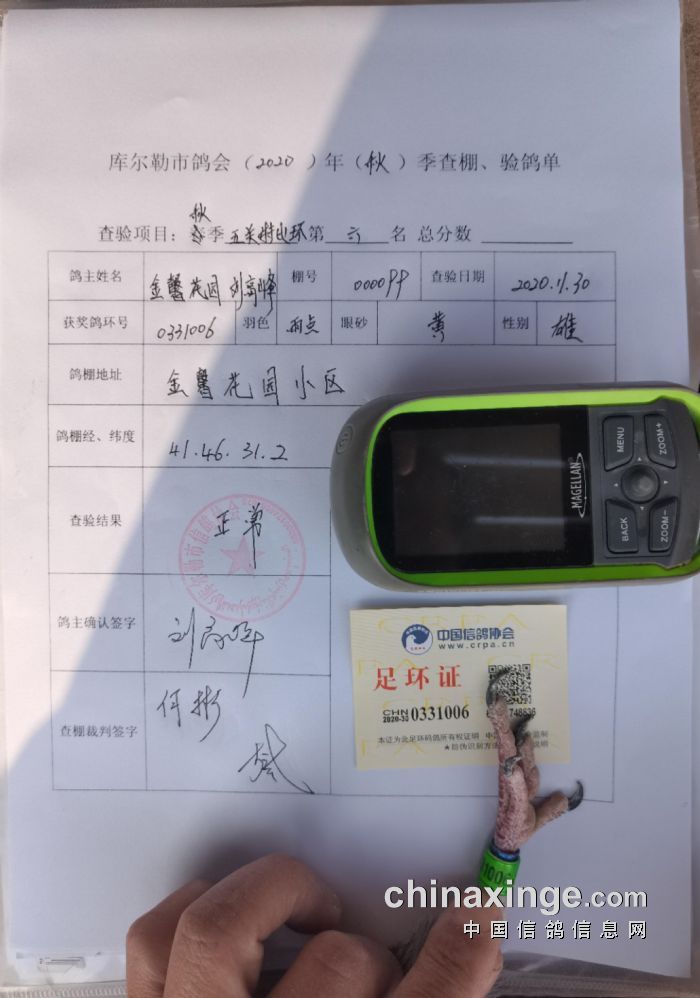 库尔勒市鸽会（2020）年（秋）季查棚、验鸽单
秋
查验项目：春季五关特比环第 六 名 总分数
鸽主姓名 金馨花园 刘高峰 棚号 000099 查验日期 2020.11.30
获奖鸽环号 0331006 羽色 雨点 眼砂 黄 性别 雄
鸽棚地址 金馨花园小区
鸽棚经、纬度 41.46.31.2
查验结果 正常
鸽主确认签字
查棚裁判签字 何彬
MAGELLAN
MENU
ZOOM+
BACK
ZOOM-
中国信鸽协会
www.crpa.cn
足环证
CHN
2020-30 0331006
748836
本证为此足环码鸽所有权证明
监制
★防伪识别方法
说明
1006
chinaxinge.com
中国信鸽信息网